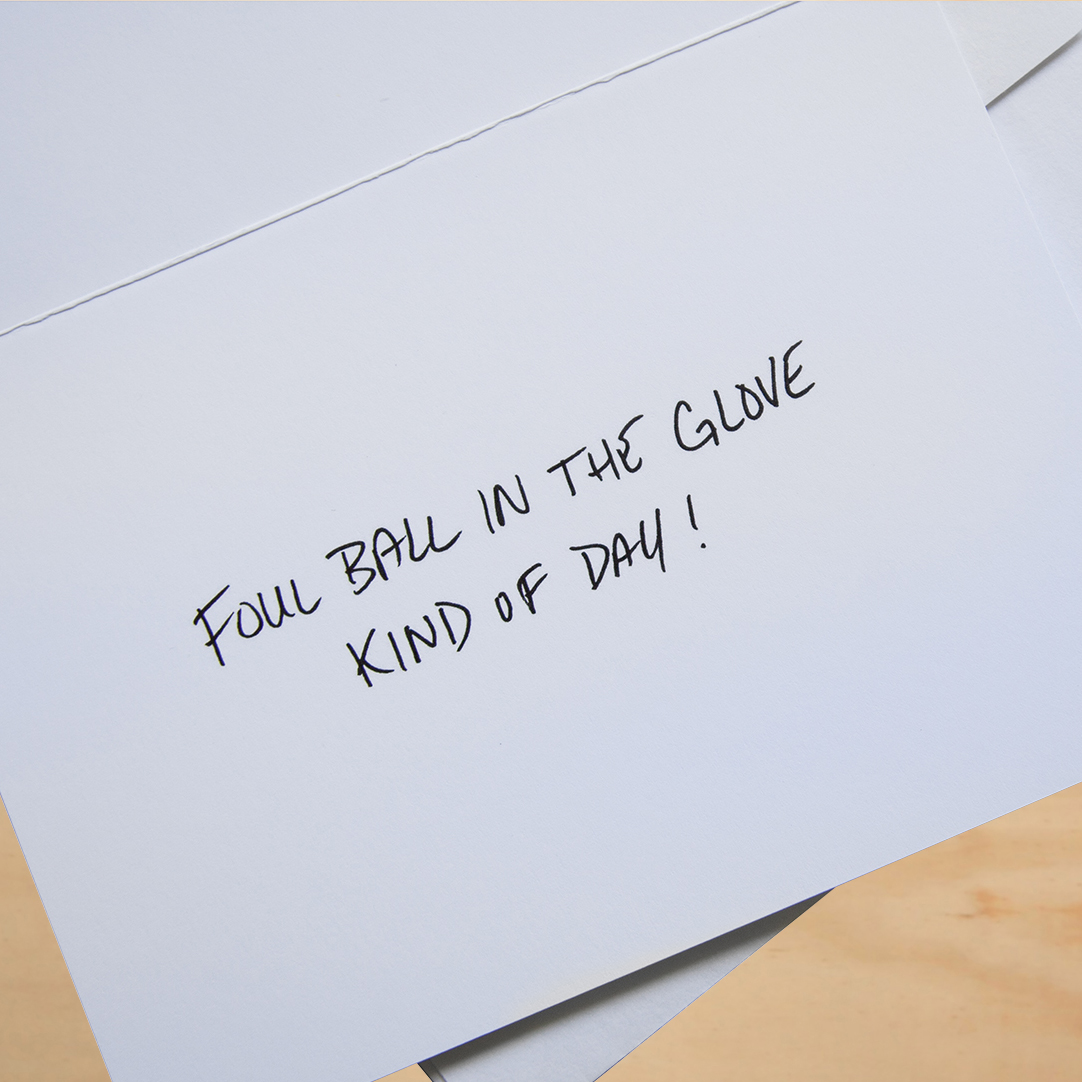 FOUL BALL IN THE GLOVE
KIND OF DAY!